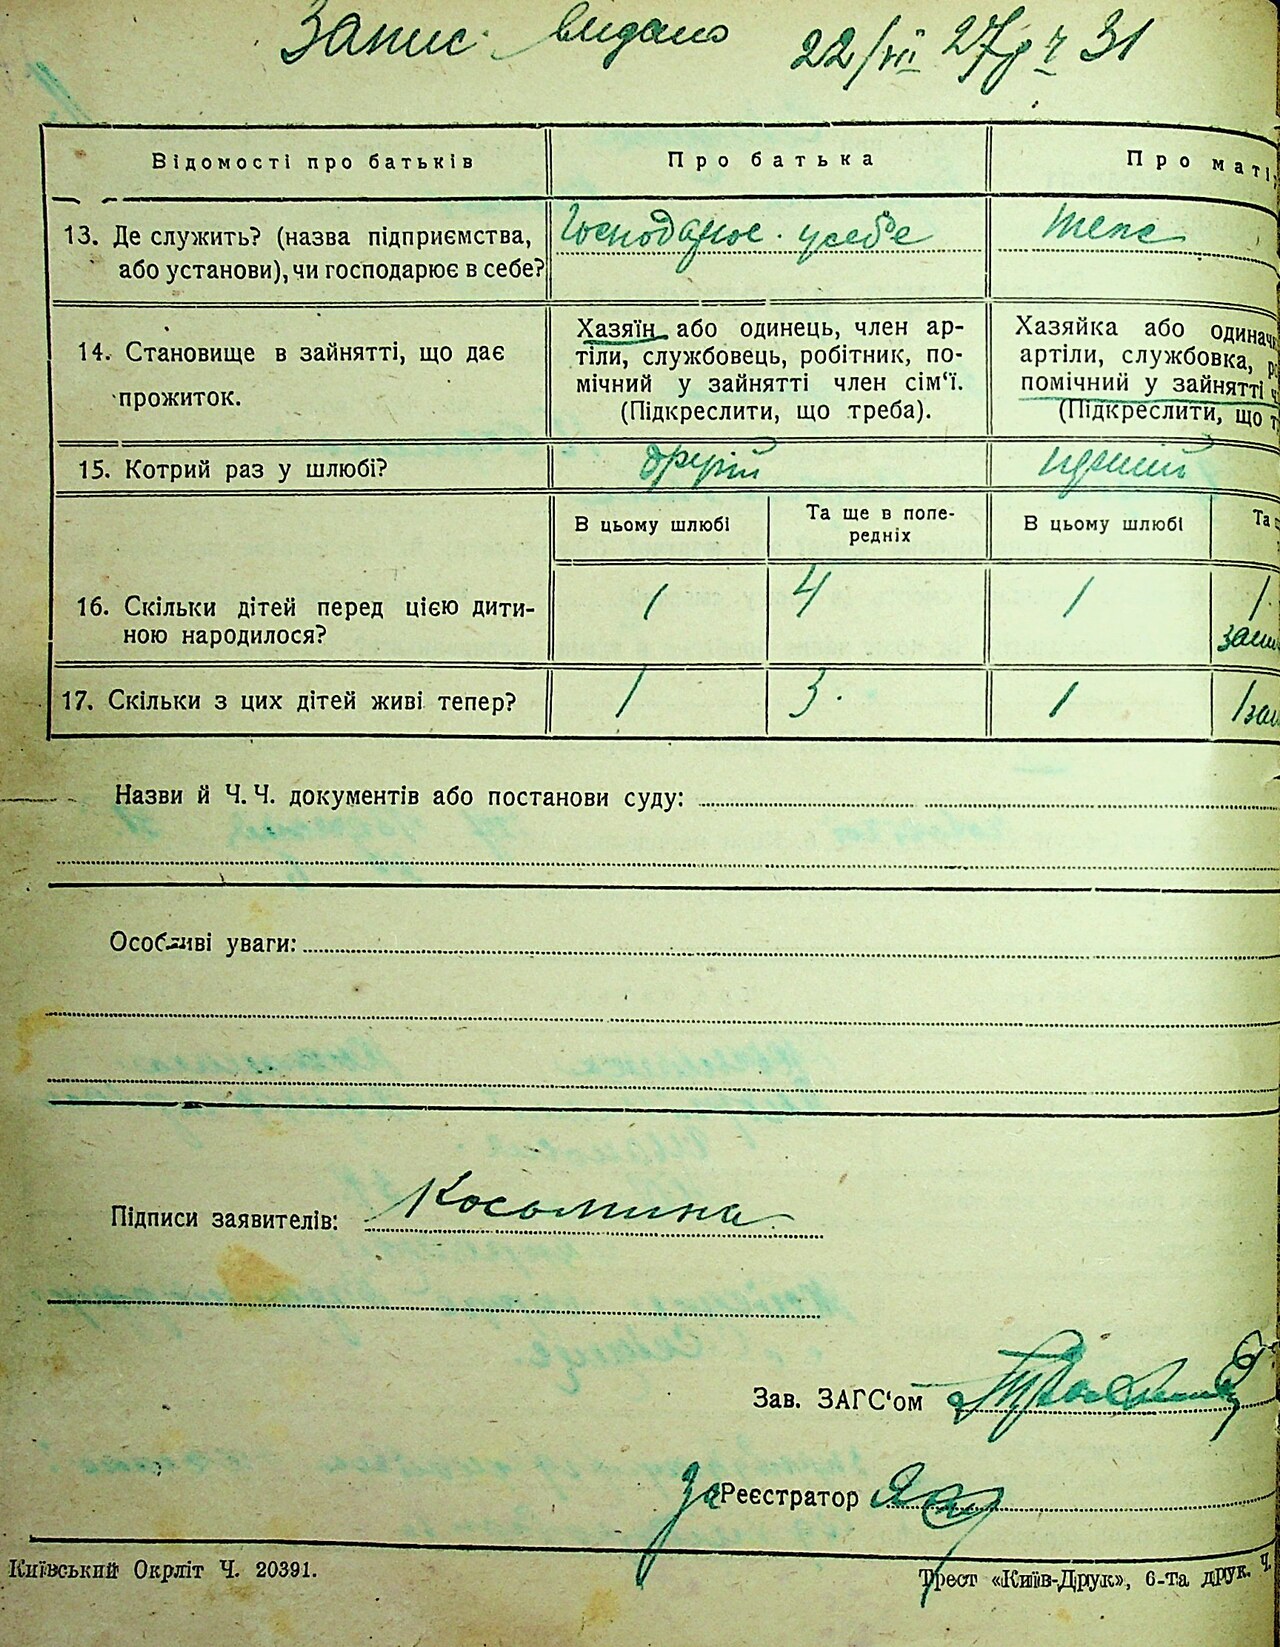 Запис видано 22/VII 27р ч 31
Відомості про батьків
Про батька
Про маті
13. Де служить? (назва підприємства,
або установи), чи господарює в себе?
Господарює у себе
теж
14. Становище в зайнятті, що дає
прожиток.
Хазяїн або одинець, член ар-
тіли, службовець, робітник, по-
мічний у зайнятті член сім'ї.
(Підкреслити, що треба).
Хазяйка або одинач
артіли, службовка, р
помічний у зайнятті ч
(Підкреслити, що т
15. Котрий раз у шлюбі?
другій
В цьому шлюбі
Та ще в попе-
редніх
В цьому шлюбі
Та
16. Скільки дітей перед цією дити-
ною народилося?
1
4
1
1
17. Скільки з цих дітей живі тепер?
1
3.
1
1
Назви й Ч. Ч. документів або постанови суду:
Особливі уваги:
Підписи заявителів:
Зав. ЗАГС'ом
за Реєстратор
Київський Окрліт Ч. 20391.
Трест «Київ-Друк», 6-та друк. Ч.